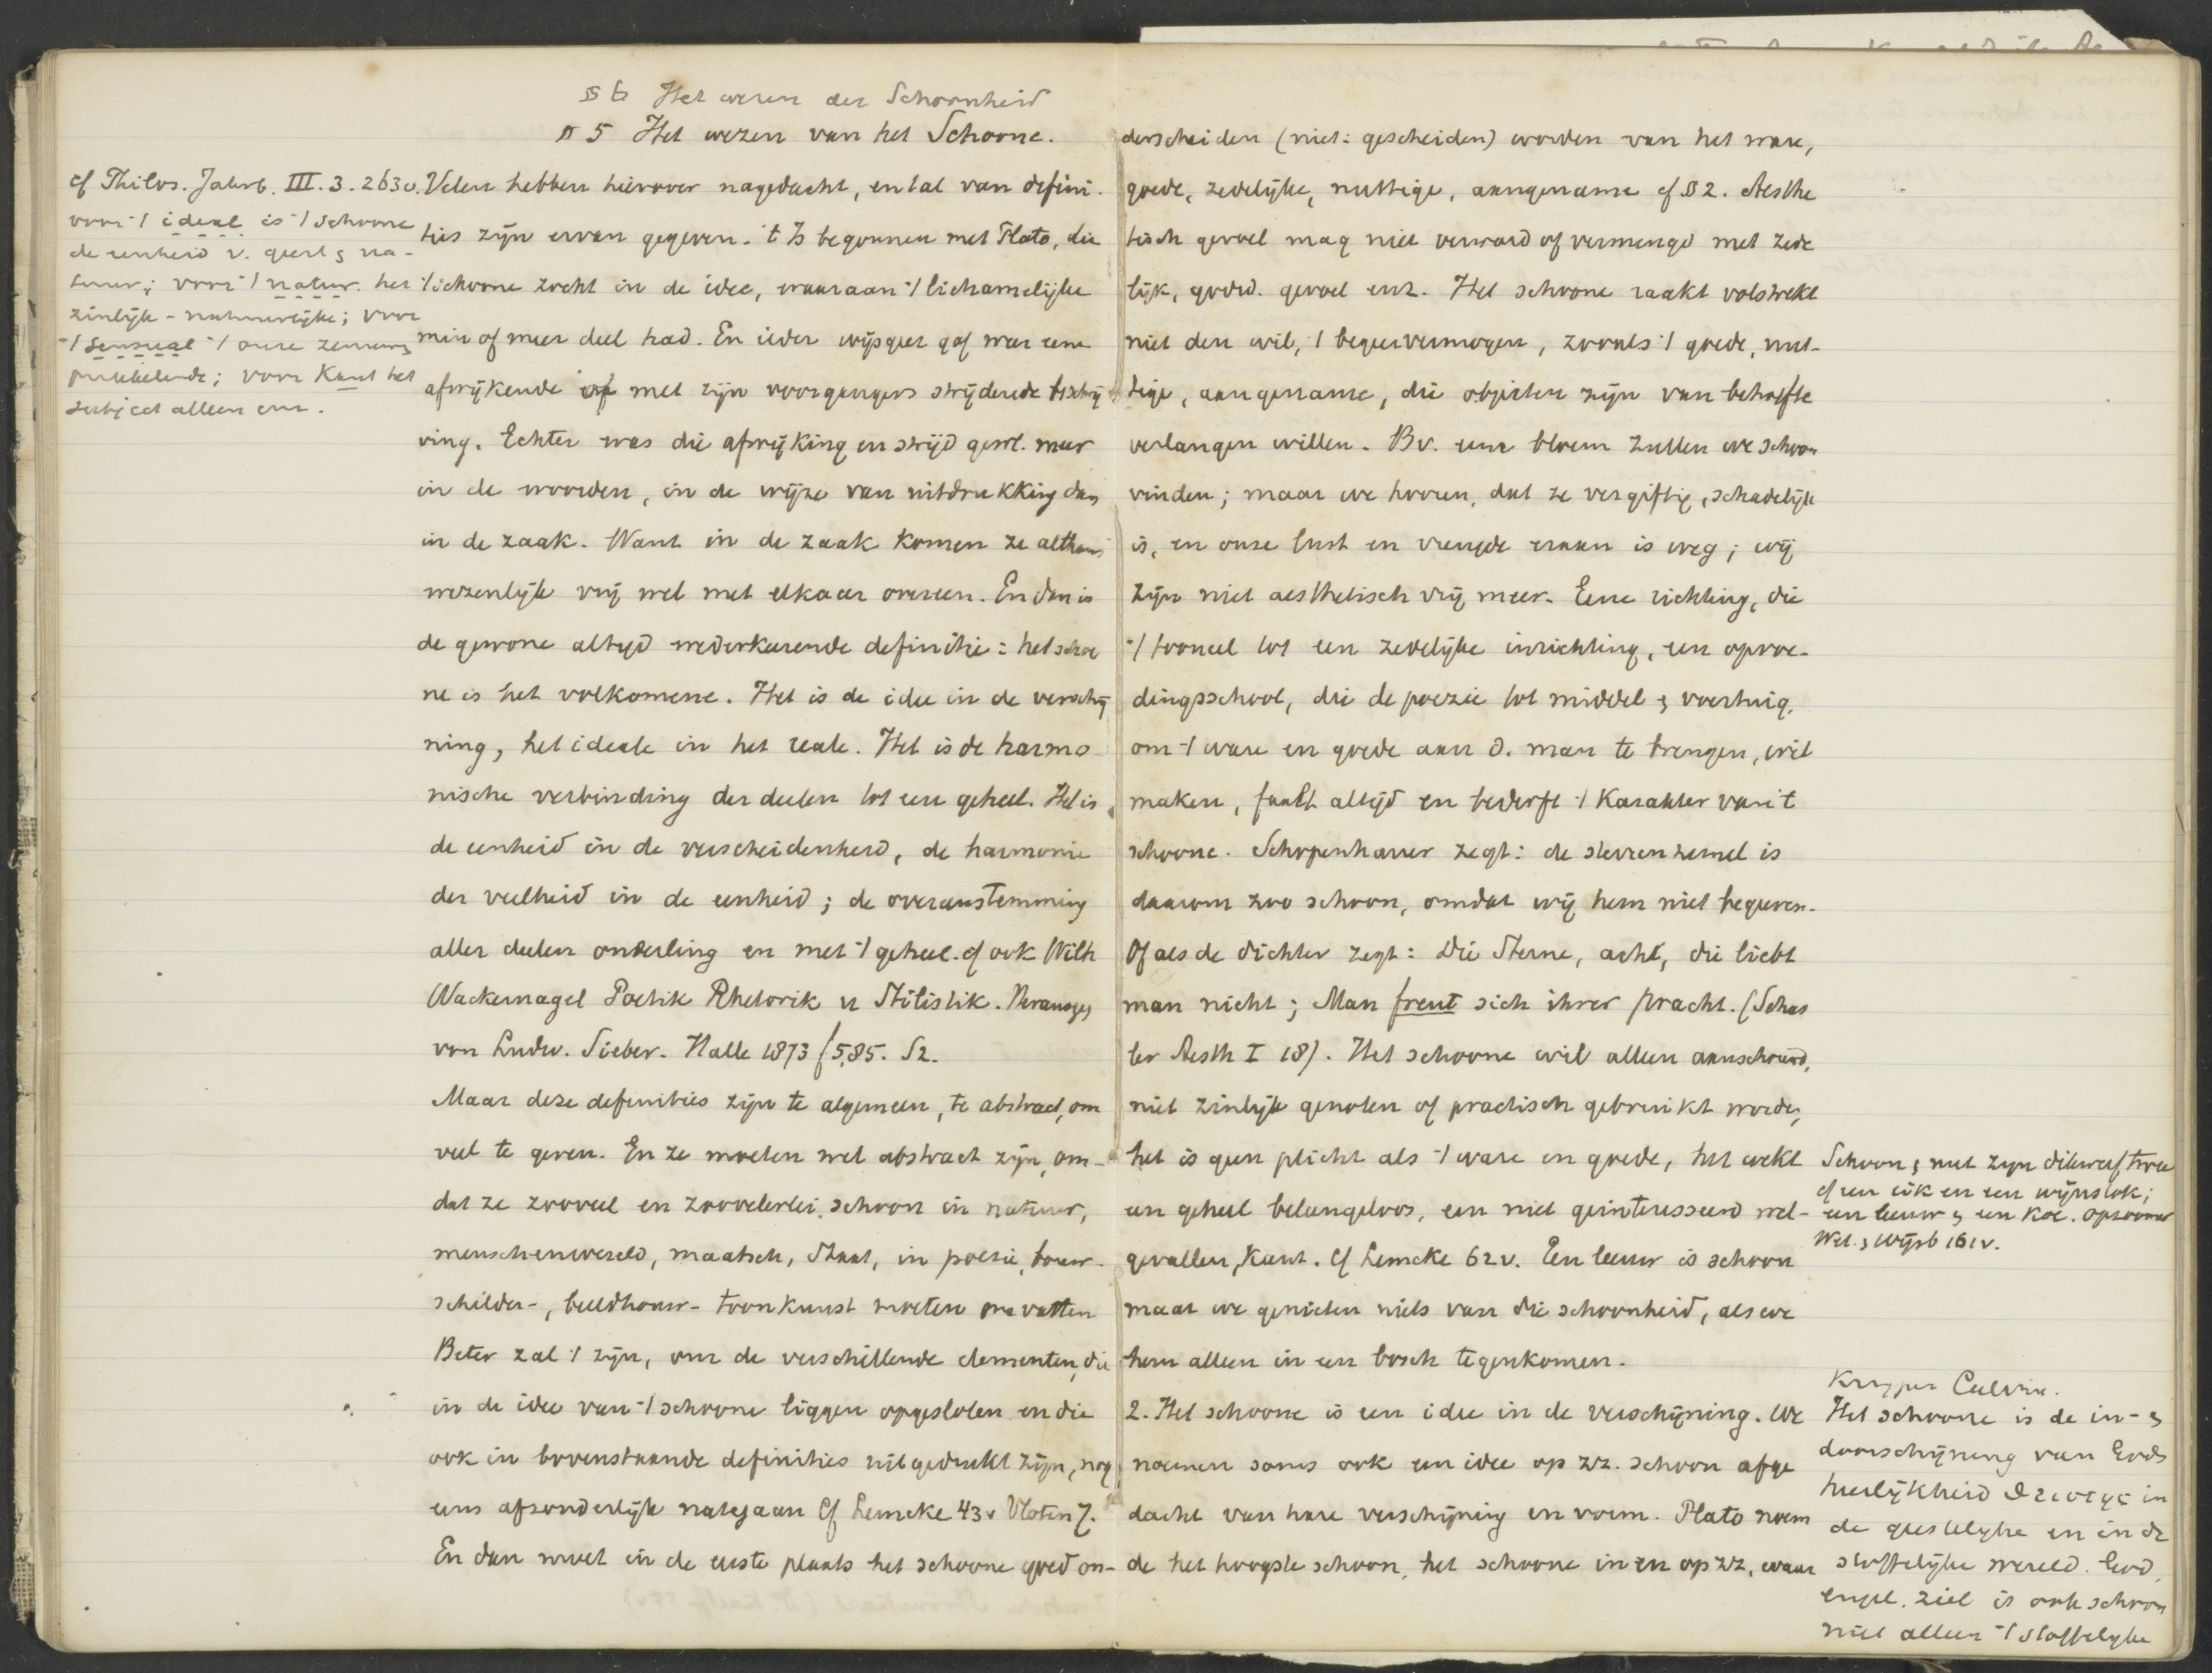 § 6 Het wezen der Schoonheid
§ 5 Het wezen van het Schoone.
cf Philos. Jahrb. III. 3. 263v.
voor 't ideal. is 't schoone
de eenheid v. geest & na-
tuur; voor 't natur. het
zinlijk-natuurlijke; voor
't sensual 't onze zenuwen
prikkelende; voor Kant het
subject alleen enz.
Velen hebben hierover nagedacht, en tal van defini-
ties zijn ervan gegeven. 't Is begonnen met Plato, die
't schoone zocht in de idee, waaraan 't lichamelijke
min of meer deel had. En ieder wijsgeer gaf weer eene
afwijkende of met zijn voorgangers strijdende beschrij-
ving. Echter was die afwijking en strijd gewl. meer
in de woorden, in de wijze van uitdrukking dan
in de zaak. Want in de zaak komen ze althans
wezenlijk vrij wel met elkaar overeen. En dan is
de gewone altijd wederkeerende definitie: het schoo
ne is het volkomene. Het is de idee in de verschij
ning, het ideale in het reale. Het is de harmo-
nische verbinding der deelen tot een geheel. Het is
de eenheid in de verscheidenheid, de harmonie
der veelheid in de eenheid; de overeenstemming
aller deelen onderling en met 't geheel. cf ook Wilh
Wackernagel Poetik Rhetorik u Stilistik. Herausgeg
von Ludw. Sieber. Halle 1873 S.
Maar deze definities zijn te algemeen, te abstract, om
veel te geven. En ze moeten wel abstract zijn, om-
dat ze zooveel en zoovelerlei schoon in natuur,
menschenwereld, maatsch, Staat, in poezie, bouw-
schilder-, beeldhouw- toonkunst moeten omvatten
Beter zal 't zijn, om de verschillende elementen, die
in de idee van 't schoone liggen opgesloten en die
ook in bovenstaande definities uitgedrukt zijn, nog
eens afzonderlijk nategaan Cf Lemcke 43v Vloten 7.
En dan moet in de eerste plaats het schoone goed on-
derscheiden (niet: gescheiden) worden van het ware,
goede, zedelijke, nuttige, aangename cf § 2. Aesthe
tisch gevoel mag niet verward of vermengd met zede
lijk, godsd. gevoel enz. Het schoone raakt volstrekt
niet den wil, 't begeervermogen, zooals 't goede, nut-
tige, aangename, die objecten zijn van behoefte
verlangen willen. Bv. eene bloem zullen we schoon
vinden; maar we hooren, dat ze vergiftig, schadelijk
is, en onze lust en vreugde eraan is weg; wij
zijn niet aesthetisch vrij meer. Eene richting, die
't tooneel tot een zedelijke inrichting, een opvoe-
dingsschool, die de poezie tot middel & voertuig,
om 't ware en goede aan d. man te brengen, wil
maken, faalt altijd en bederft 't karakter van 't
schoone. Schopenhauer zegt: de sterrenhemel is
daarom zoo schoon, omdat wij hem niet begeeren.
Of als de dichter zegt: Die Sterne, acht, die liebt
man nicht; Man freut sich ihrer Pracht. (Schas
ler Aesth I 18). Het schoone wil alleen aanschouwd,
niet zinlijk genoten of practisch gebruikt worden,
het is geen plicht als 't ware en goede, het wekt
een geheel belangeloos, een niet geinteresseerd wel-
gevallen, Kant. Cf Lemcke 62v. Een leeuw is schoon
maar we genieten niets van die schoonheid, als we
hem alleen in een bosch tegenkomen.
2. Het schoone is een idee in de verschijning. We
noemen soms ook een idee op zz. schoon afge
dacht van hare verschijning en vorm. Plato noem
de het hoogste schoon, het schoone in en op zz, waar
Schoon & nut zijn dikwerf twee
cf een eik en een wijnstok;
een leeuw & een koe. Opzoomer
Wet. & Wijsb 161v.
Kuyper Calvin.
Het schoone is de in- &
doorschijning van Gods
heerlijkheid in
de geestelijke en in de
stoffelijke wereld. God,
engel. ziel is ook schoon
niet alleen 't stoffelijke